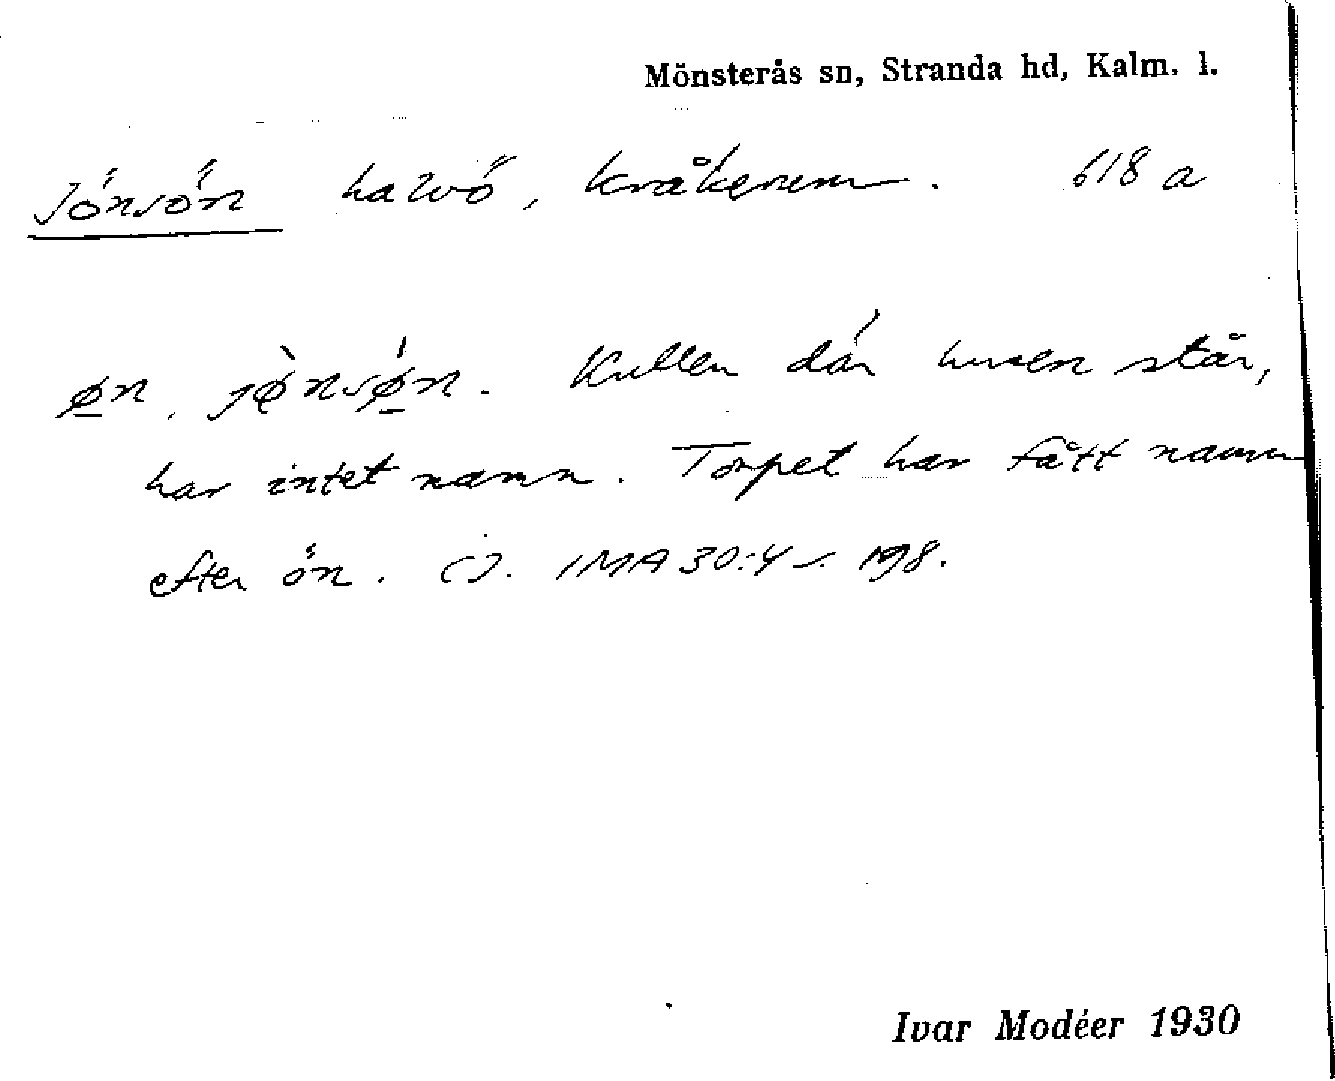 Mönsterås sn, Stranda hd, Kalm. l.
Jönsön halvö, Kråkerum. 618 a
øn, jø̀nsø̀n. Kullen där husen står,
har intet namn. Torpet har fått namn
efter ön. CJ. IMA 30:4 s. 198.
Ivar Modéer 1930